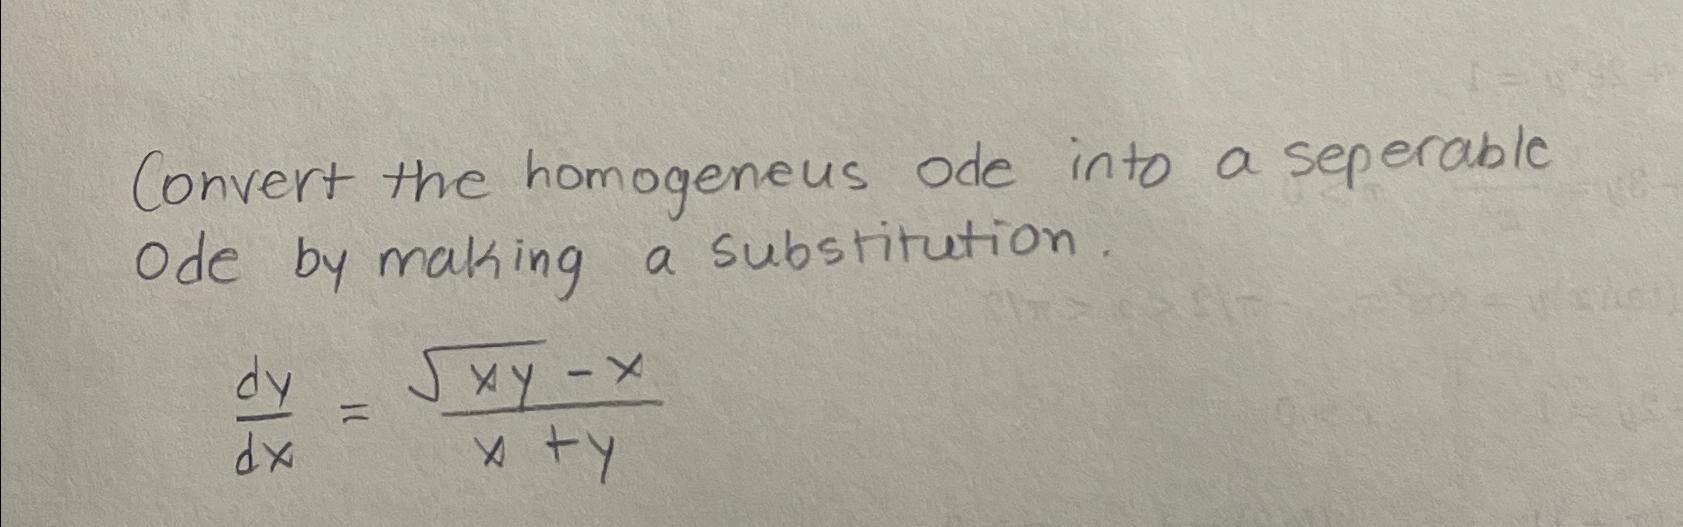 Convert the homogeneus ode into a seperable
Ode by making a substitution.
dy/dx = (√xy - x)/(x + y)